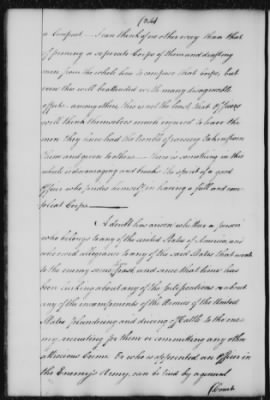 (264)
a Compact — I can think of no other way than that
of forming a separate Corps of them and drafting
men from the whole line to compose that Corps, but
even this will be attended with many disagreeable
effects, among others this is not the least, that officers
will think themselves much injured to have the
men they have had the trouble of raising taken from
them and given to others — There is something in this
which is discouraging and breaks the spirit of a good
officer who prides himself in having a full and com-
plete Corps.
A doubt has arisen whether a person
who belongs to any of the united States of America, and
who owed allegiance to any of the said States that went
to the enemy some time since and since that time has
been lurking about any of the out posts on or about
any of the encampments of the Armies of the United
States plundering and driving off Cattle to the ene-
my, recruiting for them or committing any other
atrocious Crime. Or who is appointed an officer in
the Enemy's Army, can be tried by a general
Court